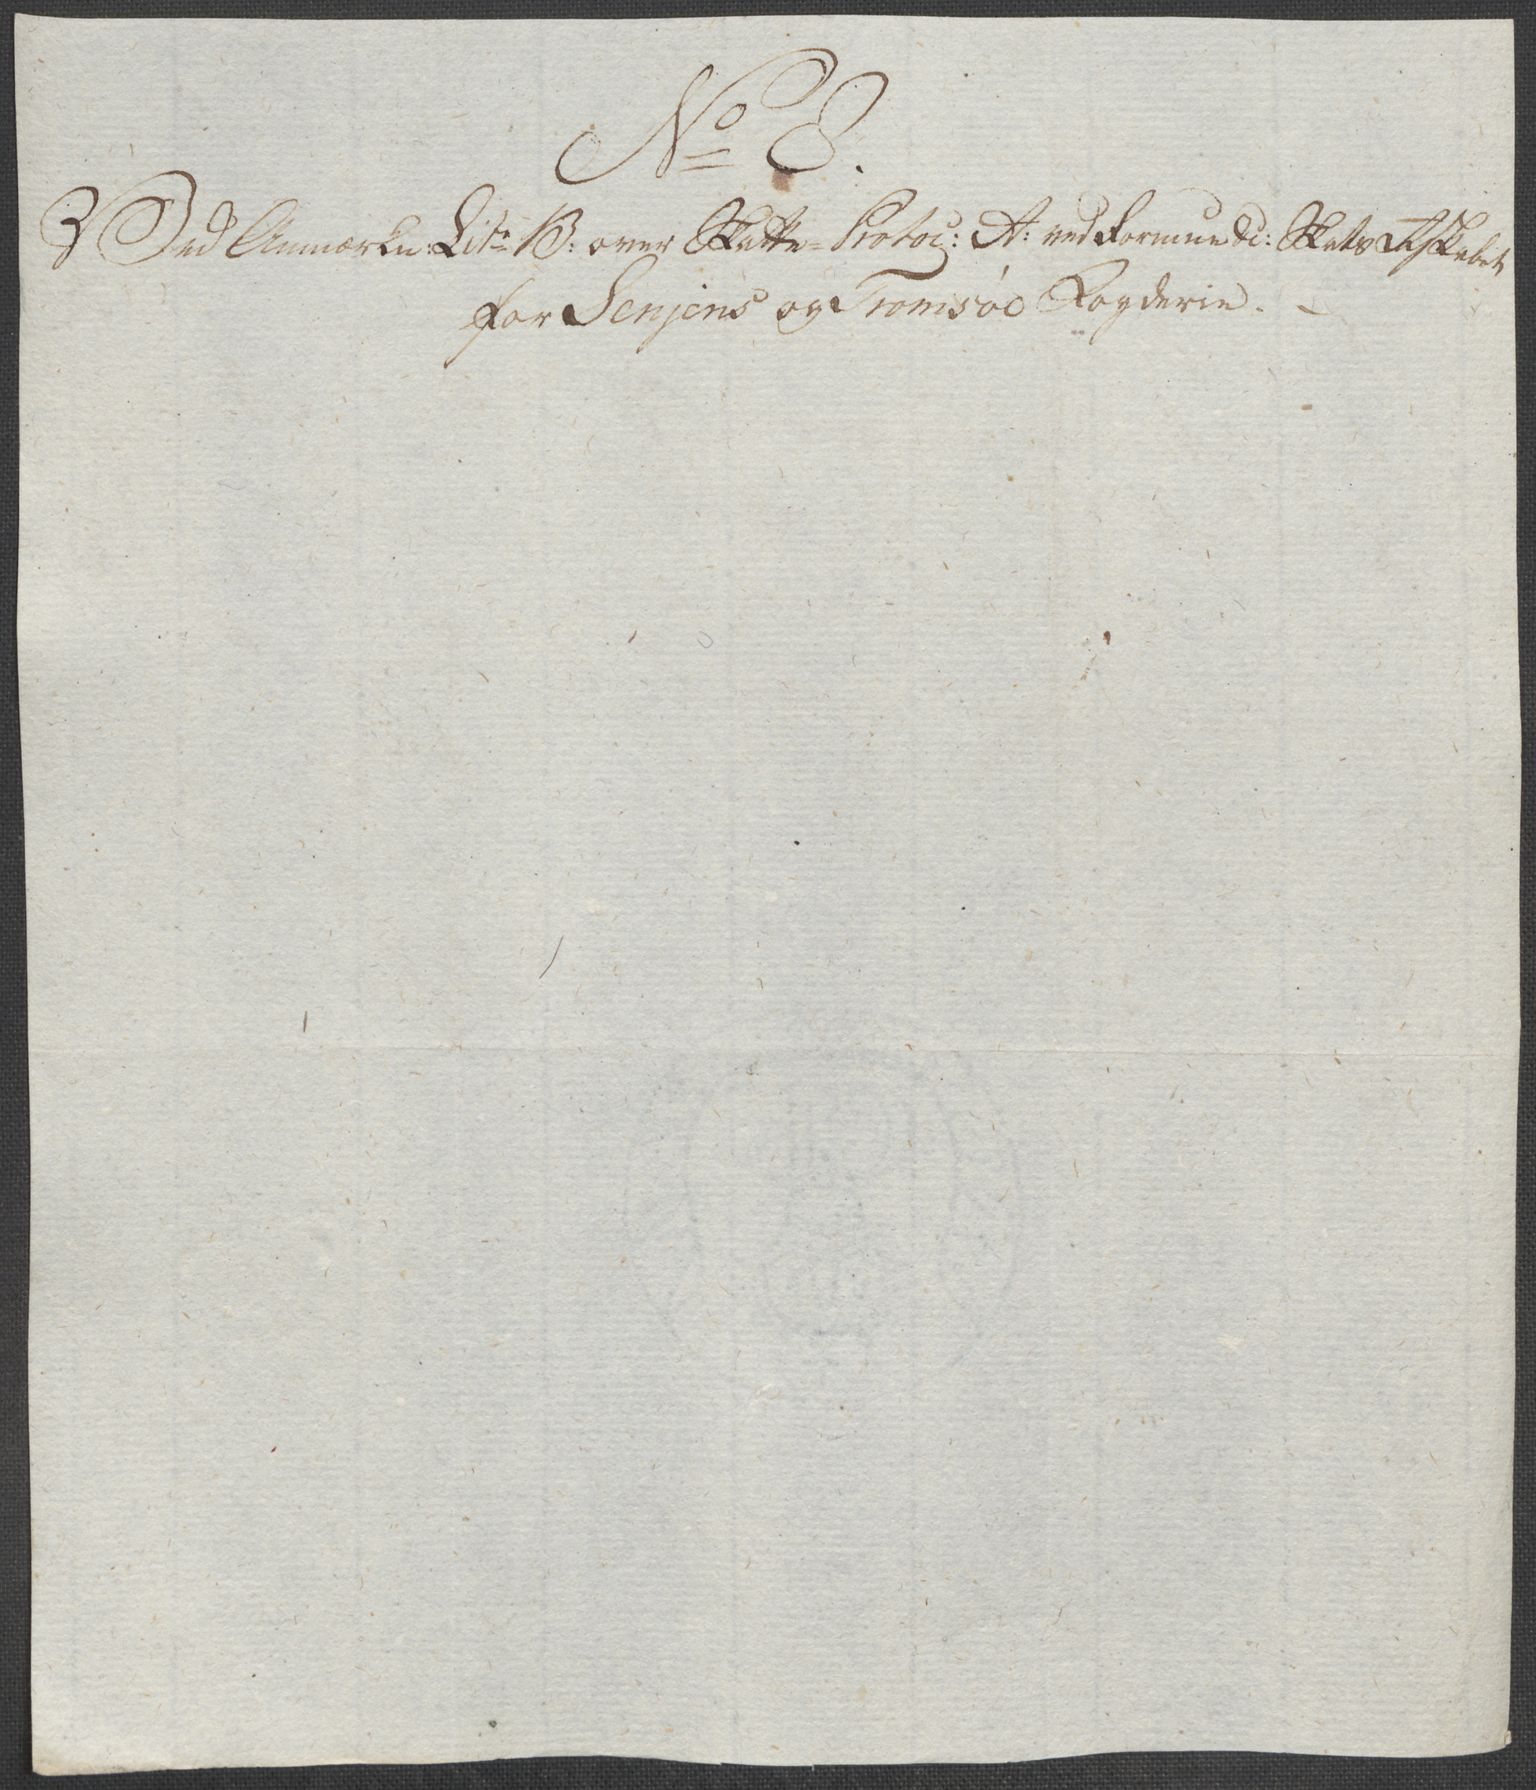 No 8.
Ved Anmærkn: Litr B: over Skatte-Protoc: A: ved Formue &c: Skats Regnskabet
for Senjens og Tromsøe Fogderie.